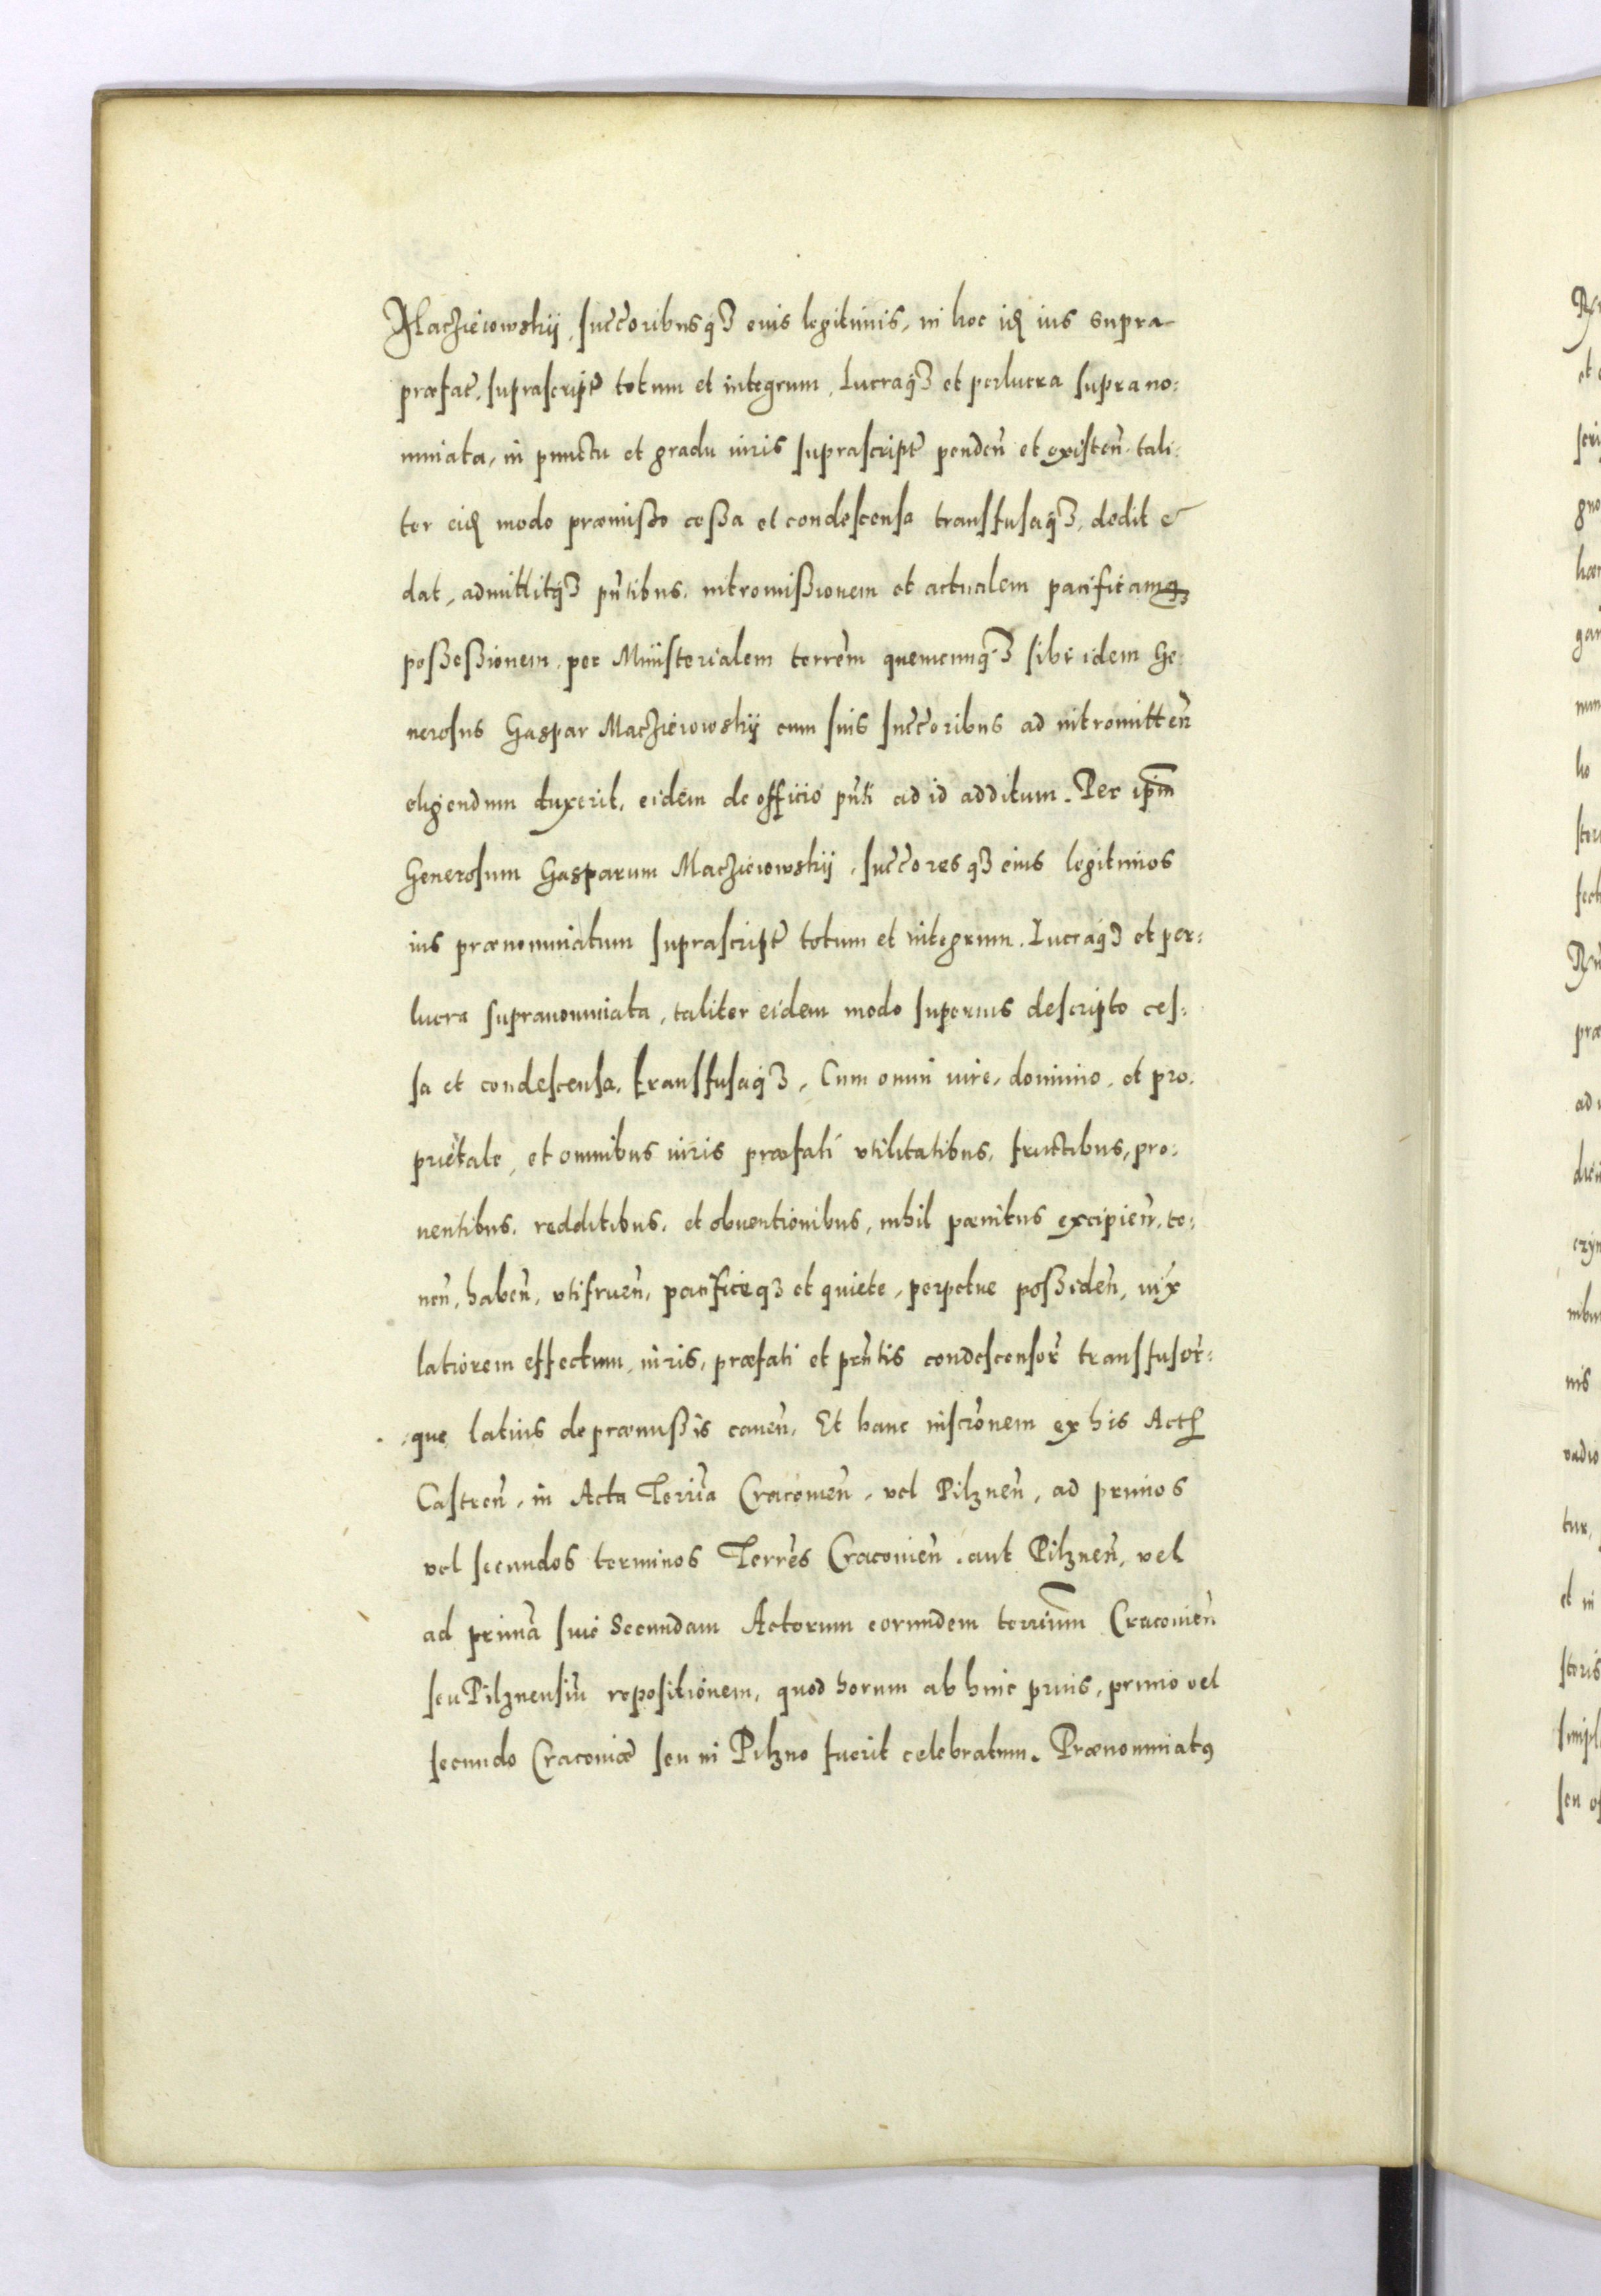 Maczieiowskij, succoribusq3 eius legitimis, in hoc id ius supra
præfat. suprascript totum et integrum, Lucraq3 et perlucra supra no:
minata, in punctu et gradu iuris suprascript penden et existen. tali:
ter eid modo præmißo ceßa et condescensa transfusaq3, dedit &
dat, admittitq3 pntibus. intromißionem et actualem pacificamq3
poßeßionem, per Ministerialem terrem quemcunq3 sibi idem Ge:
nerosus Gaspar Maczieiowskij cum suis succoribus ad intromitten
eligendum duxerit, eidem de officio pnti ad id additum. Per ipm
Generosum Gasparum Maczieiowskij, succoresq3 eius legitimos
ius prænominatum suprascript totum et integrum. Lucraq3 et per:
lucra supranominata, taliter eidem modo superius descripto ces:
sa et condescensa, transfusaq3, Cum omni iure, dominio, et pro.
prietate, et omnibus iuris præfati vtilitatibus, fructibus, pro:
uentibus. redditibus. et obuentionibus, nihil pænitus excipien, te:
nen, haben, vtifruen, pacificeq3 et quiete, perpetue poßiden, iux
latiorem effectum, iuris, præfati et pntis condescensor transfusor:
que latius de præmißis cauen, Et hanc inscronem ex his Act
Castren, in Acta Terria Cracouien, vel Pilznen, ad primos
vel secundos terminos Terres Cracouien, aut Pilznen, vel
ad prima siue Secundam Actorum eorundem terrium Cracouien
seu Pilznensiu repositionem, quod horum ab hinc prius, primo vel
secundo Cracouiæ seu in Pilzno fuerit celebratum. Prænominatq